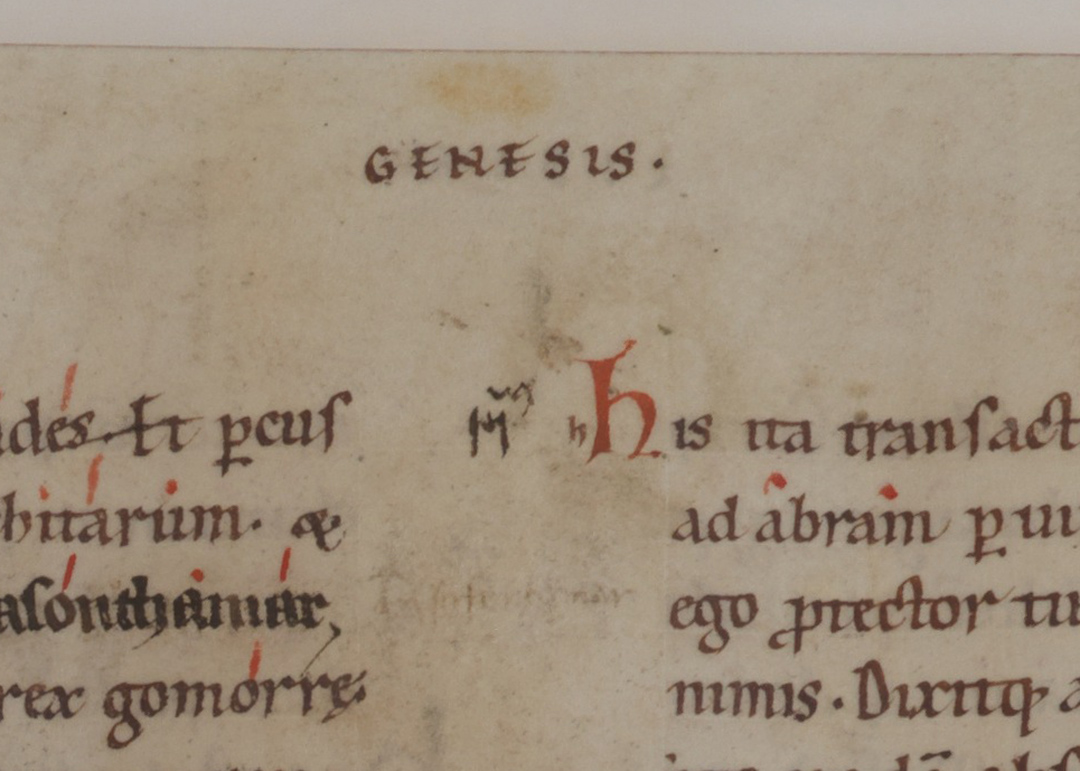 GENESIS.
ides. Et ꝑcus
bitarium. &
asonthamar,
rex gomorrę.
his ita transact
ad abram ꝑ ui
ego ꝓtector tu
nimis. Dixitq; a